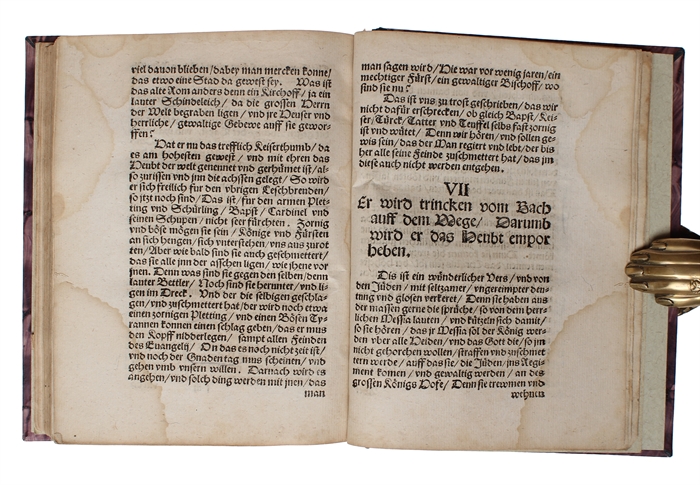 viel dauon blieben / dabey man mercken konne /
das etwo eine Stad da gewest sey. Was ist
das alte Rom anders denn ein Kirchoff / ja ein
lauter Schindeleich / da die grossen Herrn
der Welt begraben ligen / vnd jre Heuser vnd
herrliche / gewaltige Gebewe auff sie gewor-
ffen?
Hat er nu das trefflich Keiserthumb / da
es am hohesten gewest / vnd mit ehren das
Heubt der welt genennet vnd gerhümet ist / al-
so zurissen vnd jnn die achssen gelegt / So wird
er sich freilich fur den vbrigen Leschbrenden /
so jtzt noch sind / Das ist / fur den armen Plet-
ting vnd Schürling / Bapst / Cardinel vnd
seinen Schupen / nicht seer fürchten. Zornig
vnd böse mögen sie sein / Könige vnd Fürsten
an sich hengen / sich vnterstehen / vns aus zurot
ten / Aber wie bald sind sie auch geschmettert /
das sie alle jnn der asschen ligen / wie jhene vor
jnen. Denn was sind sie gegen den selben / denn
lauter Bettler / Noch sind sie herunter / vnd li-
gen im Dreck. Vnd der die selbigen geschla-
gen / vnd zuschmettert hat / der wird noch etwa
einen zornigen Pletting / vnd einen Bösen Ty-
rannen konnen einen schlag geben / das er mus
den Kopff nidderlegen / sampt allen Feinden
des Euangelij / On das es noch nicht zeit ist /
vnd noch der Gnaden tag mus scheinen / vnd
gehen vmb vnsern willen. Darnach wird es
angehen / vnd solch ding werden mit jnen / das
man
man sagen wird / Hie war vor wenig jaren / ein
mechtiger Fürst / ein gewaltiger Bischoff / wo
sind sie nu?
Das ist vns zu trost geschrieben / das wir
nicht dafür erschrecken / ob gleich Bapst / Kei-
ser / Türck / Tatter vnd Teuffel selbs fast zornig
ist vnd wütet / Denn wir hören / vnd sollen ge-
wis sein / das der Man regiert vnd lebt / der bis
her alle seine Feinde zuschmettert hat / das jm
diese auch nicht werden entgehen.
VII
Er wird trincken vom Bach
auff dem Wege / Darumb
wird er das Heubt empor
heben.
Dis ist ein wünderlicher Vers / vnd von
den Jüden / mit seltzamer / vngereimpter deu-
tung vnd glosen verkeret / Denn sie haben aus
der massen gerne die sprüche / so von dem herr-
lichen Messia lauten / vnd kützeln sich damit /
so sie hören / das jr Messia sol der König wer-
den vber alle Heiden / vnd das Gott die / so jm
nicht gehorchen wollen / straffen vnd zuschmet
tern werde / auff das sie / die Jüden / jns Regi-
ment komen / vnd gewaltig werden / an des
grossen Königs Hofe / Denn sie trewmen vnd
wehnen